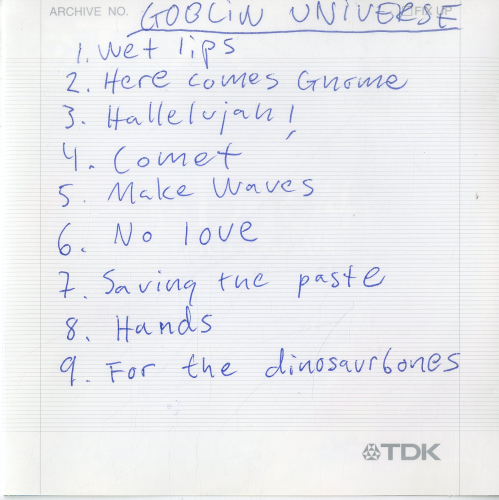 ARCHIVE NO. GOBLIN UNIVERSE
1. Wet lips
2. Here comes Gnome
3. Hallelujah!
4. Comet
5. Make Waves
6. No love
7. Saving the paste
8. Hands
9. For the dinosaurbones
TDK